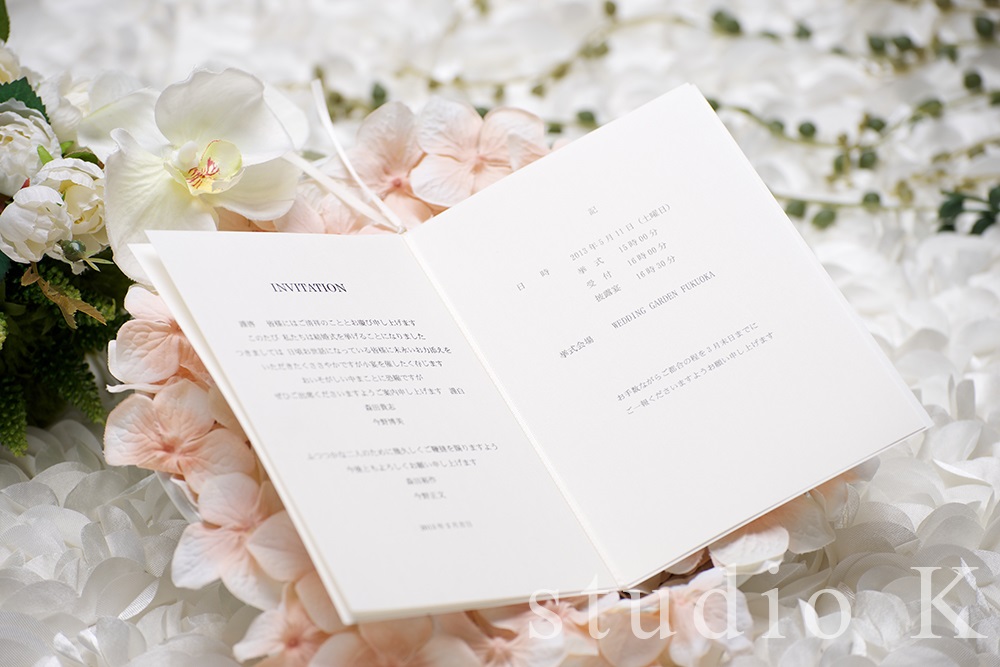 INVITATION
謹啓　皆様にはご清祥のこととお慶び申し上げます
このたび 私たちは結婚式を挙げることになりました
つきましては 日頃お世話になっている皆様に末永いお力添えを
いただきたく ささやかですが小宴を催したく存じます
おいそがしい中まことに恐縮ですが
ぜひご出席くださいますようご案内申し上げます　謹白
森田貴志
今野博美
ふつつかな二人のために幾久しくご厚情を賜りますよう
今後ともよろしくお願い申し上げます
森田
今野正文
記
日　時　2013年5月11日（土曜日）
挙　式　15時00分
受　付　16時00分
披露宴　16時30分
挙式会場　WEDDING GARDEN FUKUOKA
お手数ながらご都合の程を3月末日までに
ご一報くださいますようお願い申し上げます
studio K